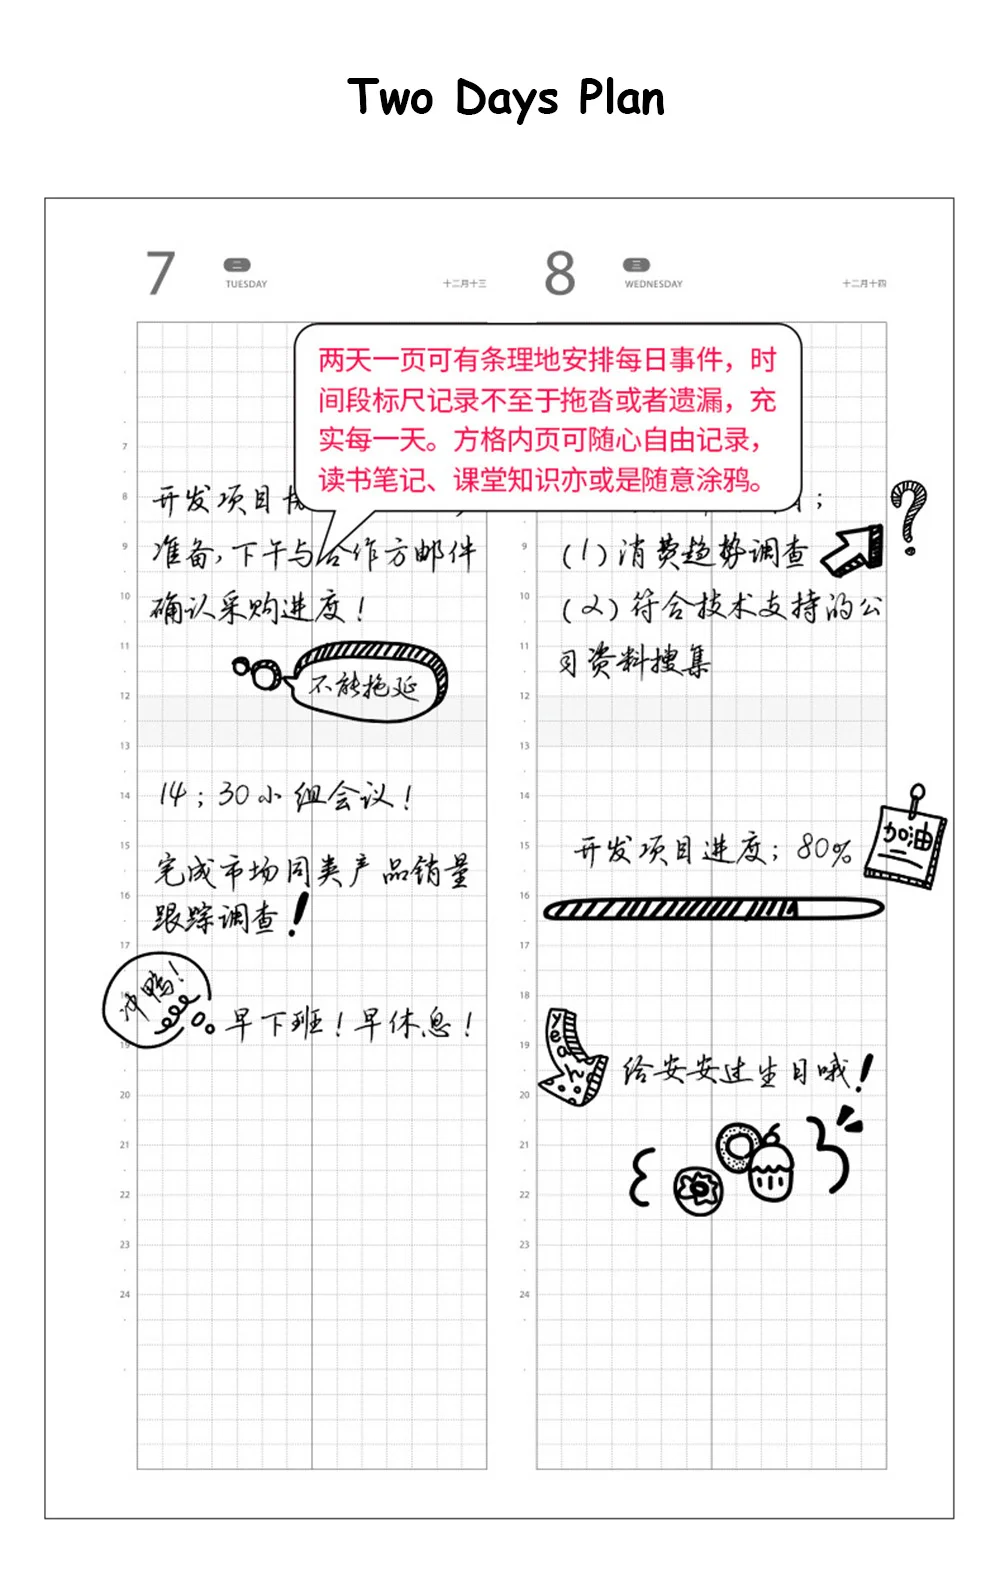 Two Days Plan
7
二
TUESDAY
十二月十三
8
三
WEDNESDAY
十二月十四
两天一页可有条理地安排每日事件，时
间段标尺记录不至于拖沓或者遗漏，充
实每一天。方格内页可随心自由记录，
读书笔记、课堂知识亦或是随意涂鸦。
7
8
9
10
11
12
13
14
15
16
17
18
19
20
21
22
23
24
开发项目
准备，下午与合作方邮件
确认采购进度！
不能拖延
14：30小组会议！
完成市场同类产品销量
跟踪调查！
冲鸭！
早下班！早休息！
8
9
10
11
12
13
14
15
16
17
18
19
20
21
22
23
24
；
?
(1)消费趋势调查
(2)符合技术支持的公
司资料搜集
开发项目进度；80%
加油
yeah
给安安过生日哦！